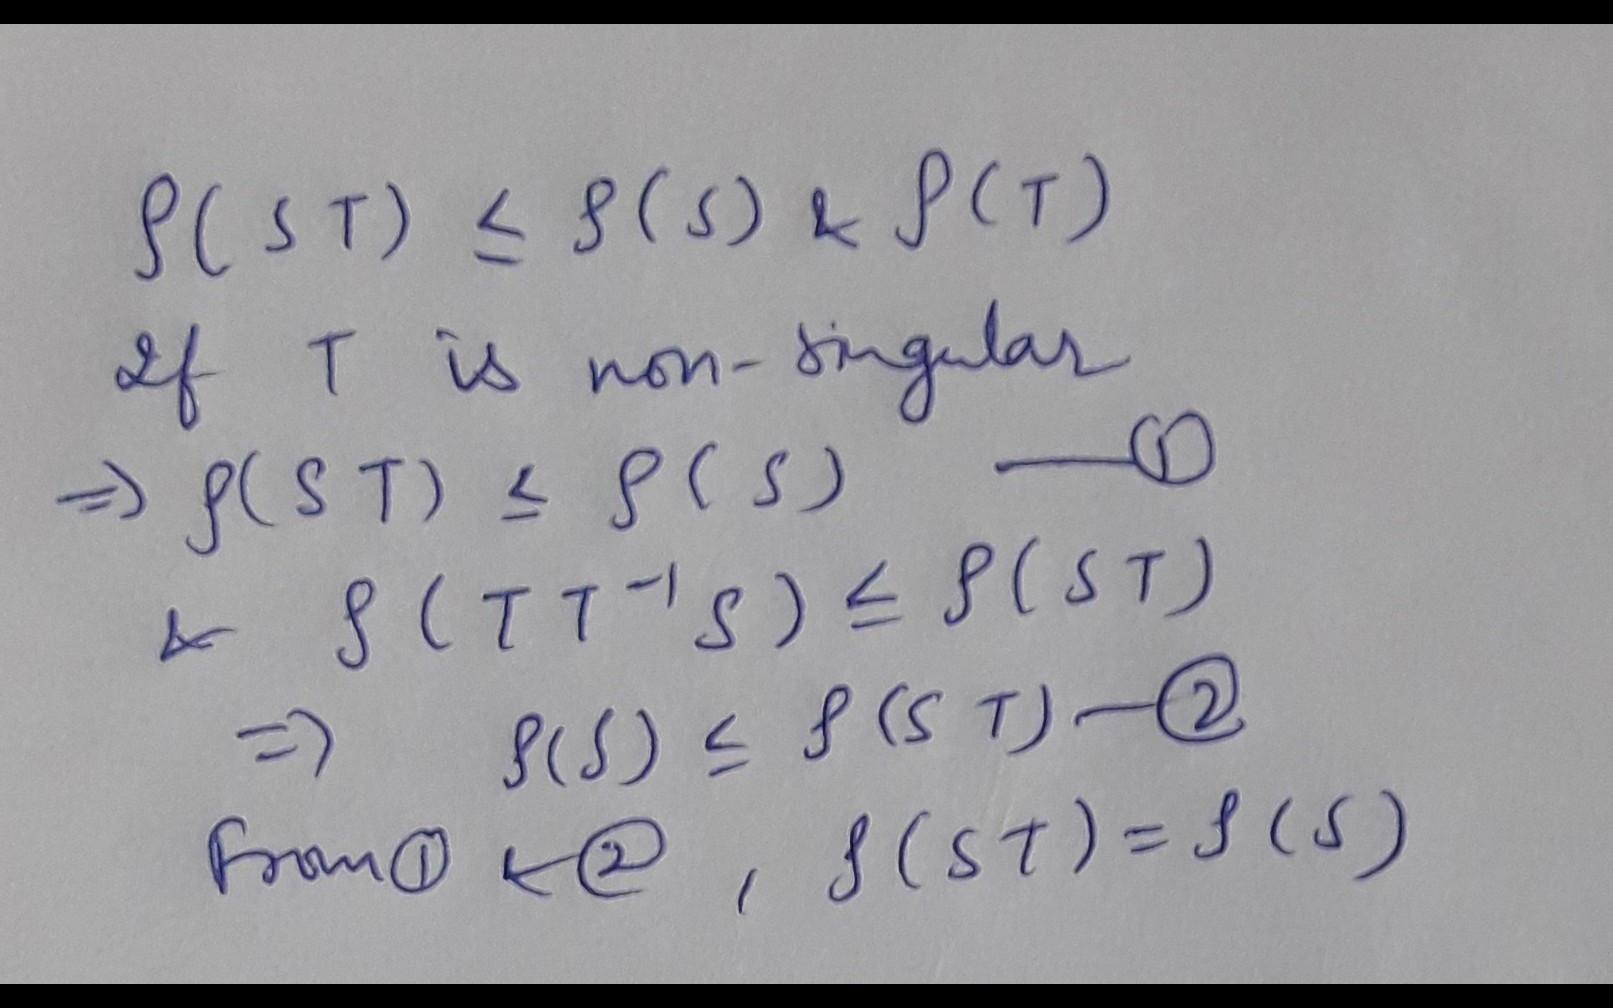 ρ(ST) ≤ ρ(S) & ρ(T)
If T is non-singular
⇒ ρ(ST) ≤ ρ(S) —①
& ρ(TT⁻¹S) ≤ ρ(ST)
⇒ ρ(S) ≤ ρ(ST) —②
From ① & ②, ρ(ST) = ρ(S)